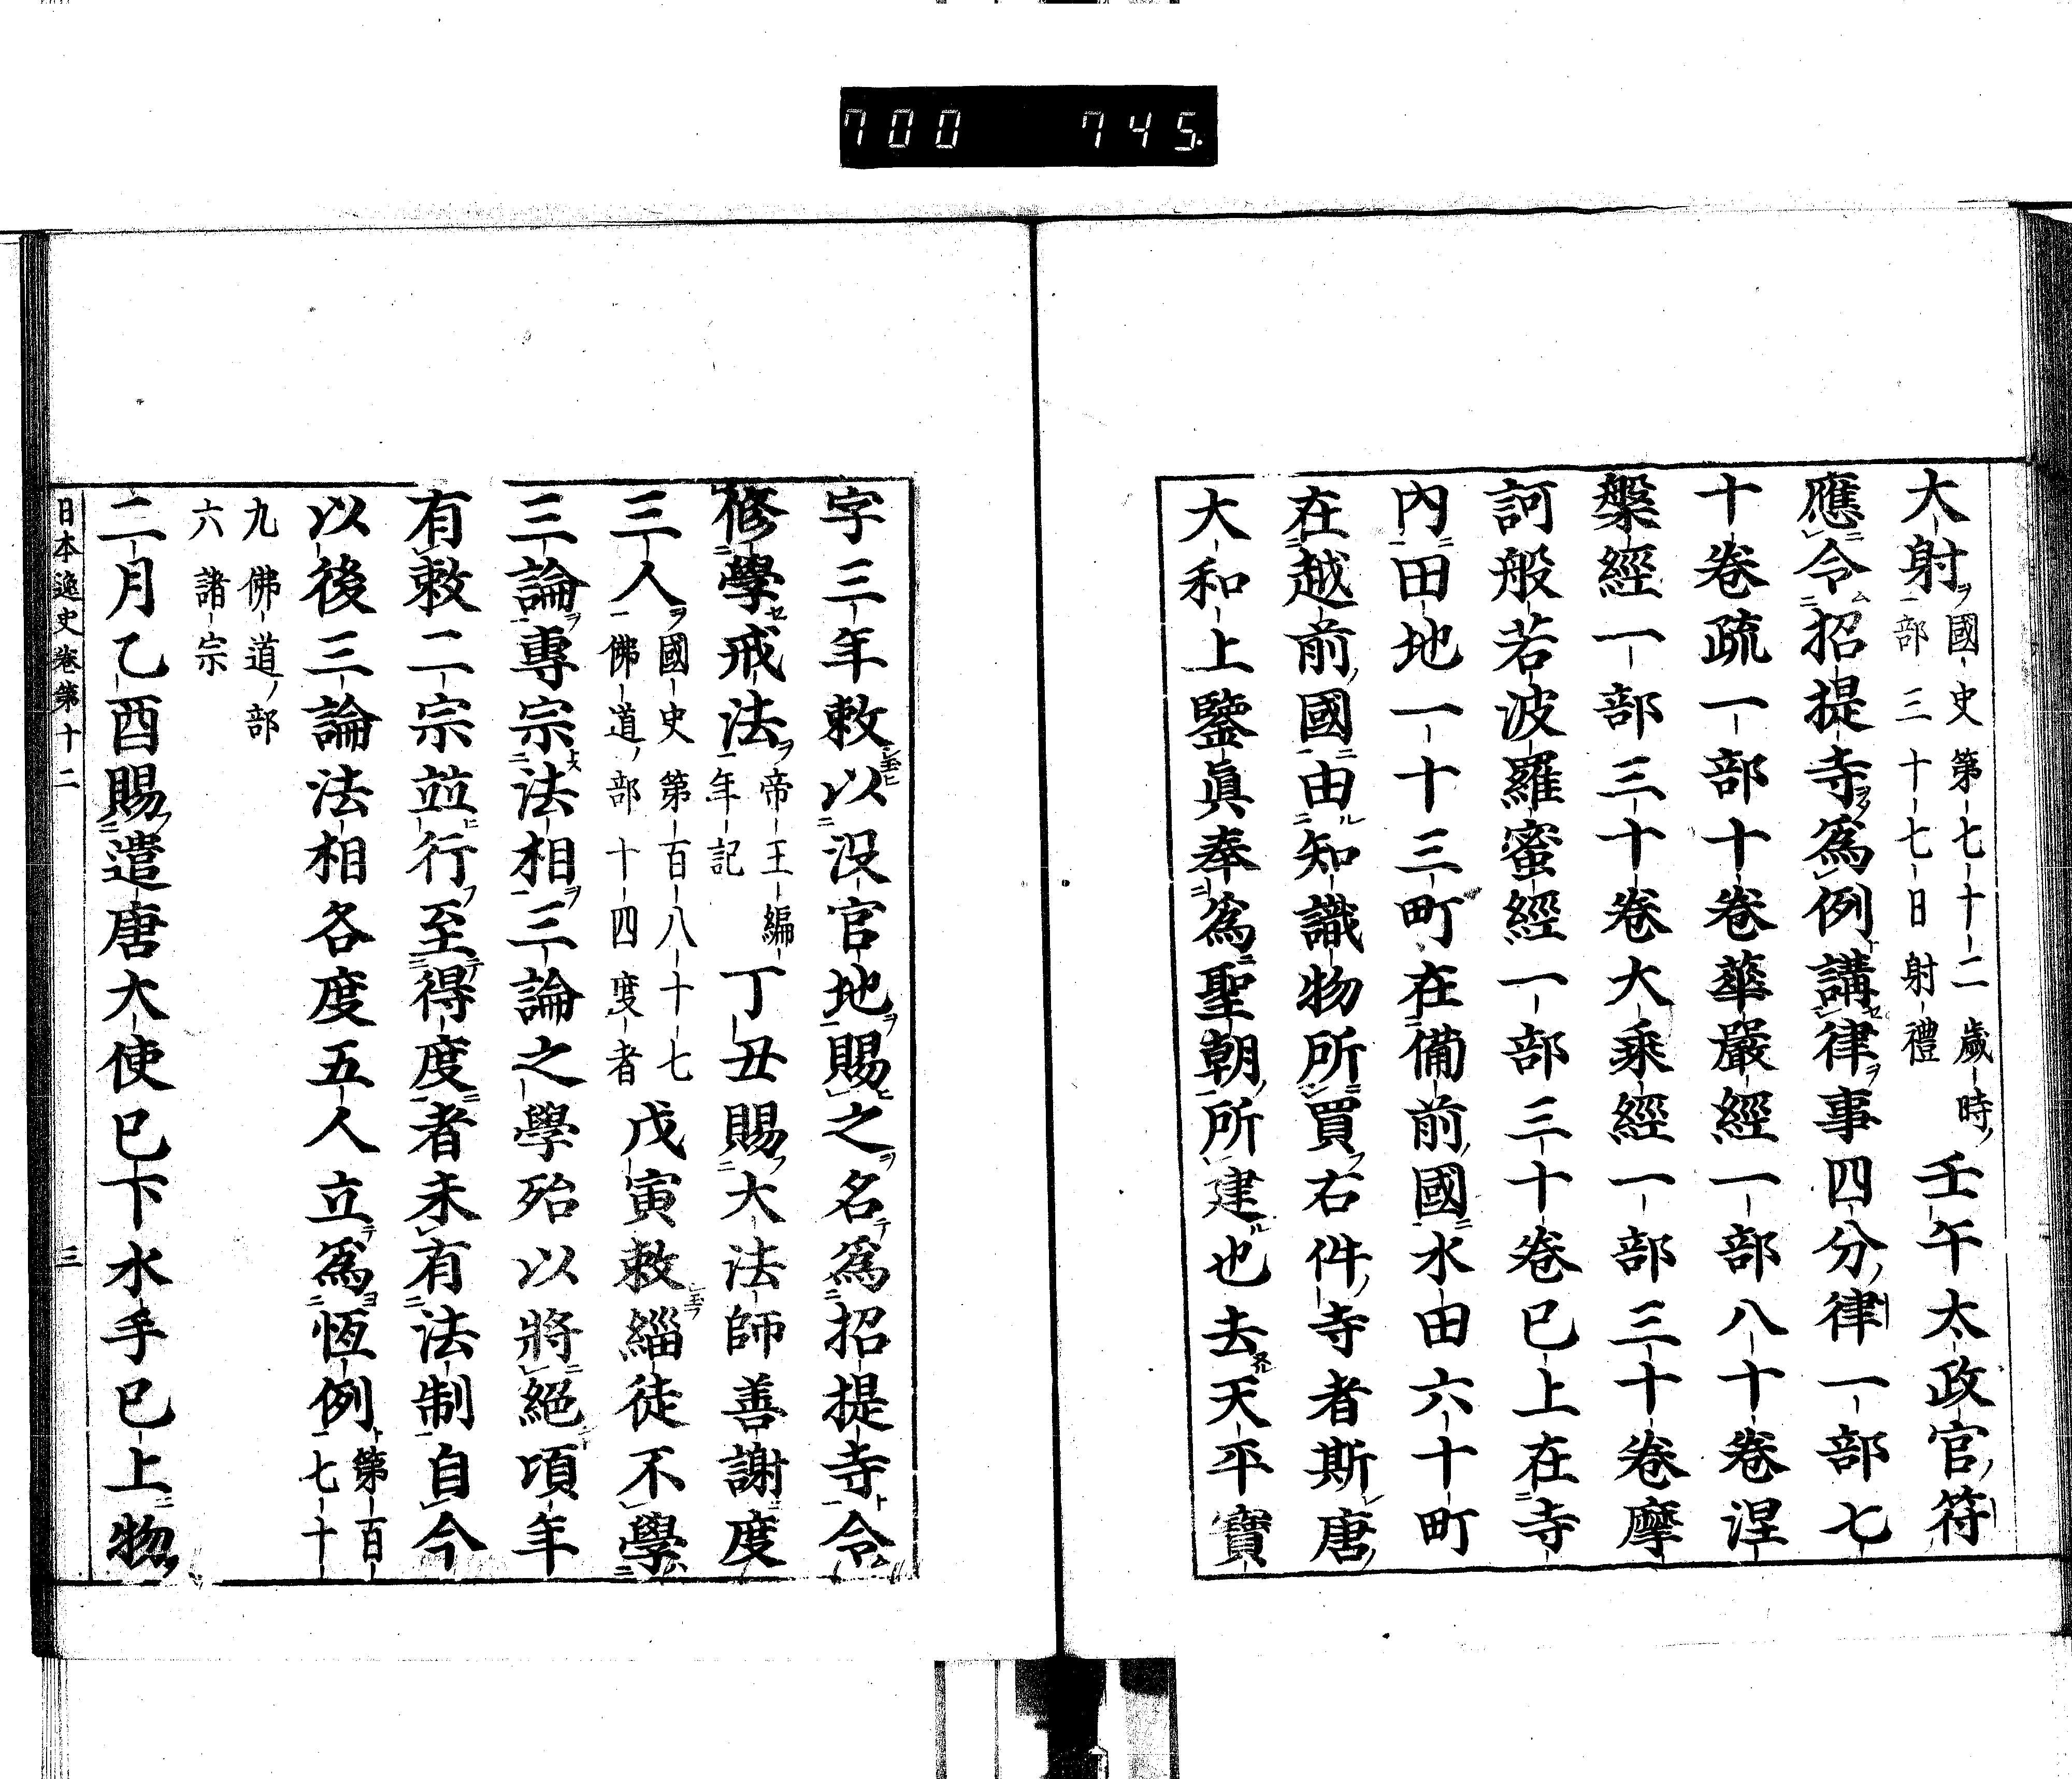 700 745.
大射國史第七十二歲時部三十七日射禮壬午太政官符
應令招提寺爲例講律事四分律一部七
十卷疏一部十卷華嚴經一部八十卷涅
槃經一部三十卷大乘經一部三十卷摩
訶般若波羅蜜經一部三十卷已上在寺
內田地一十三町在備前國水田六十町
在越前國由知識物所買右件寺者斯唐
大和上鑒眞奉爲聖朝所建也去天平寶
字三年敕以没官地賜之名爲招提寺令
修學戒法帝王編年記丁丑賜大法師善謝度
三人國史第百八十七佛道部十四度者戊寅敕緇徒不學
三論專宗法相三論之學殆以將絕頃年
有敕二宗竝行至得度者未有法制自今
以後三論法相各度五人立爲恆例第百七十
九佛道部六諸宗
二月乙酉賜遣唐大使已下水手已上物
日本逸史卷第十二 三